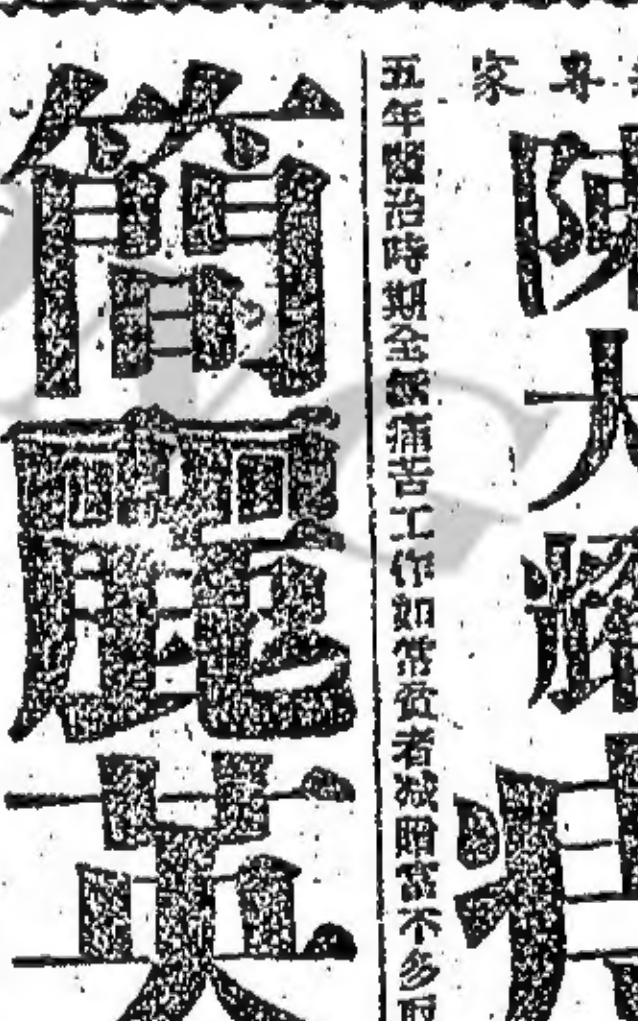 家專
陳大輝
五年醫治時期全無痛苦工作如常貧者減贈富不多取
簡麗英